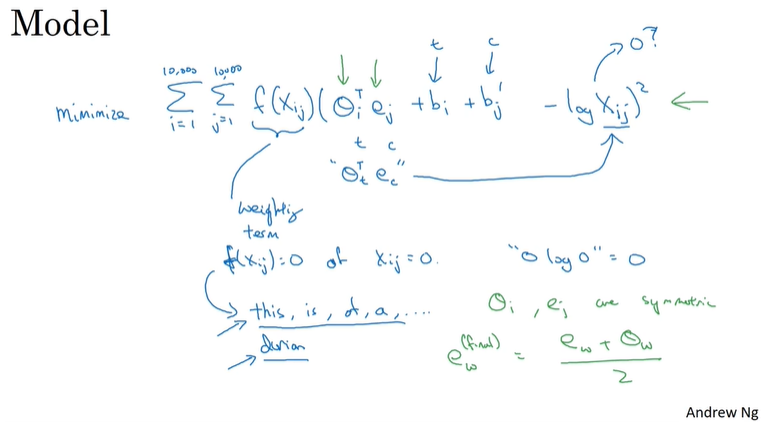 Model
minimize 10,000 ∑ i=1 10,000 ∑ j=1 f(Xij) (θiᵀ ej + bi + bj′ - log Xij)²
t c 0?
t c
"θtᵀ ec"
weighting
term
f(Xij)=0 if Xij=0. "0 log 0" = 0
this, is, of, a, ....
durian
θi, ej are symmetric
ew(final) = ew + θw / 2
Andrew Ng